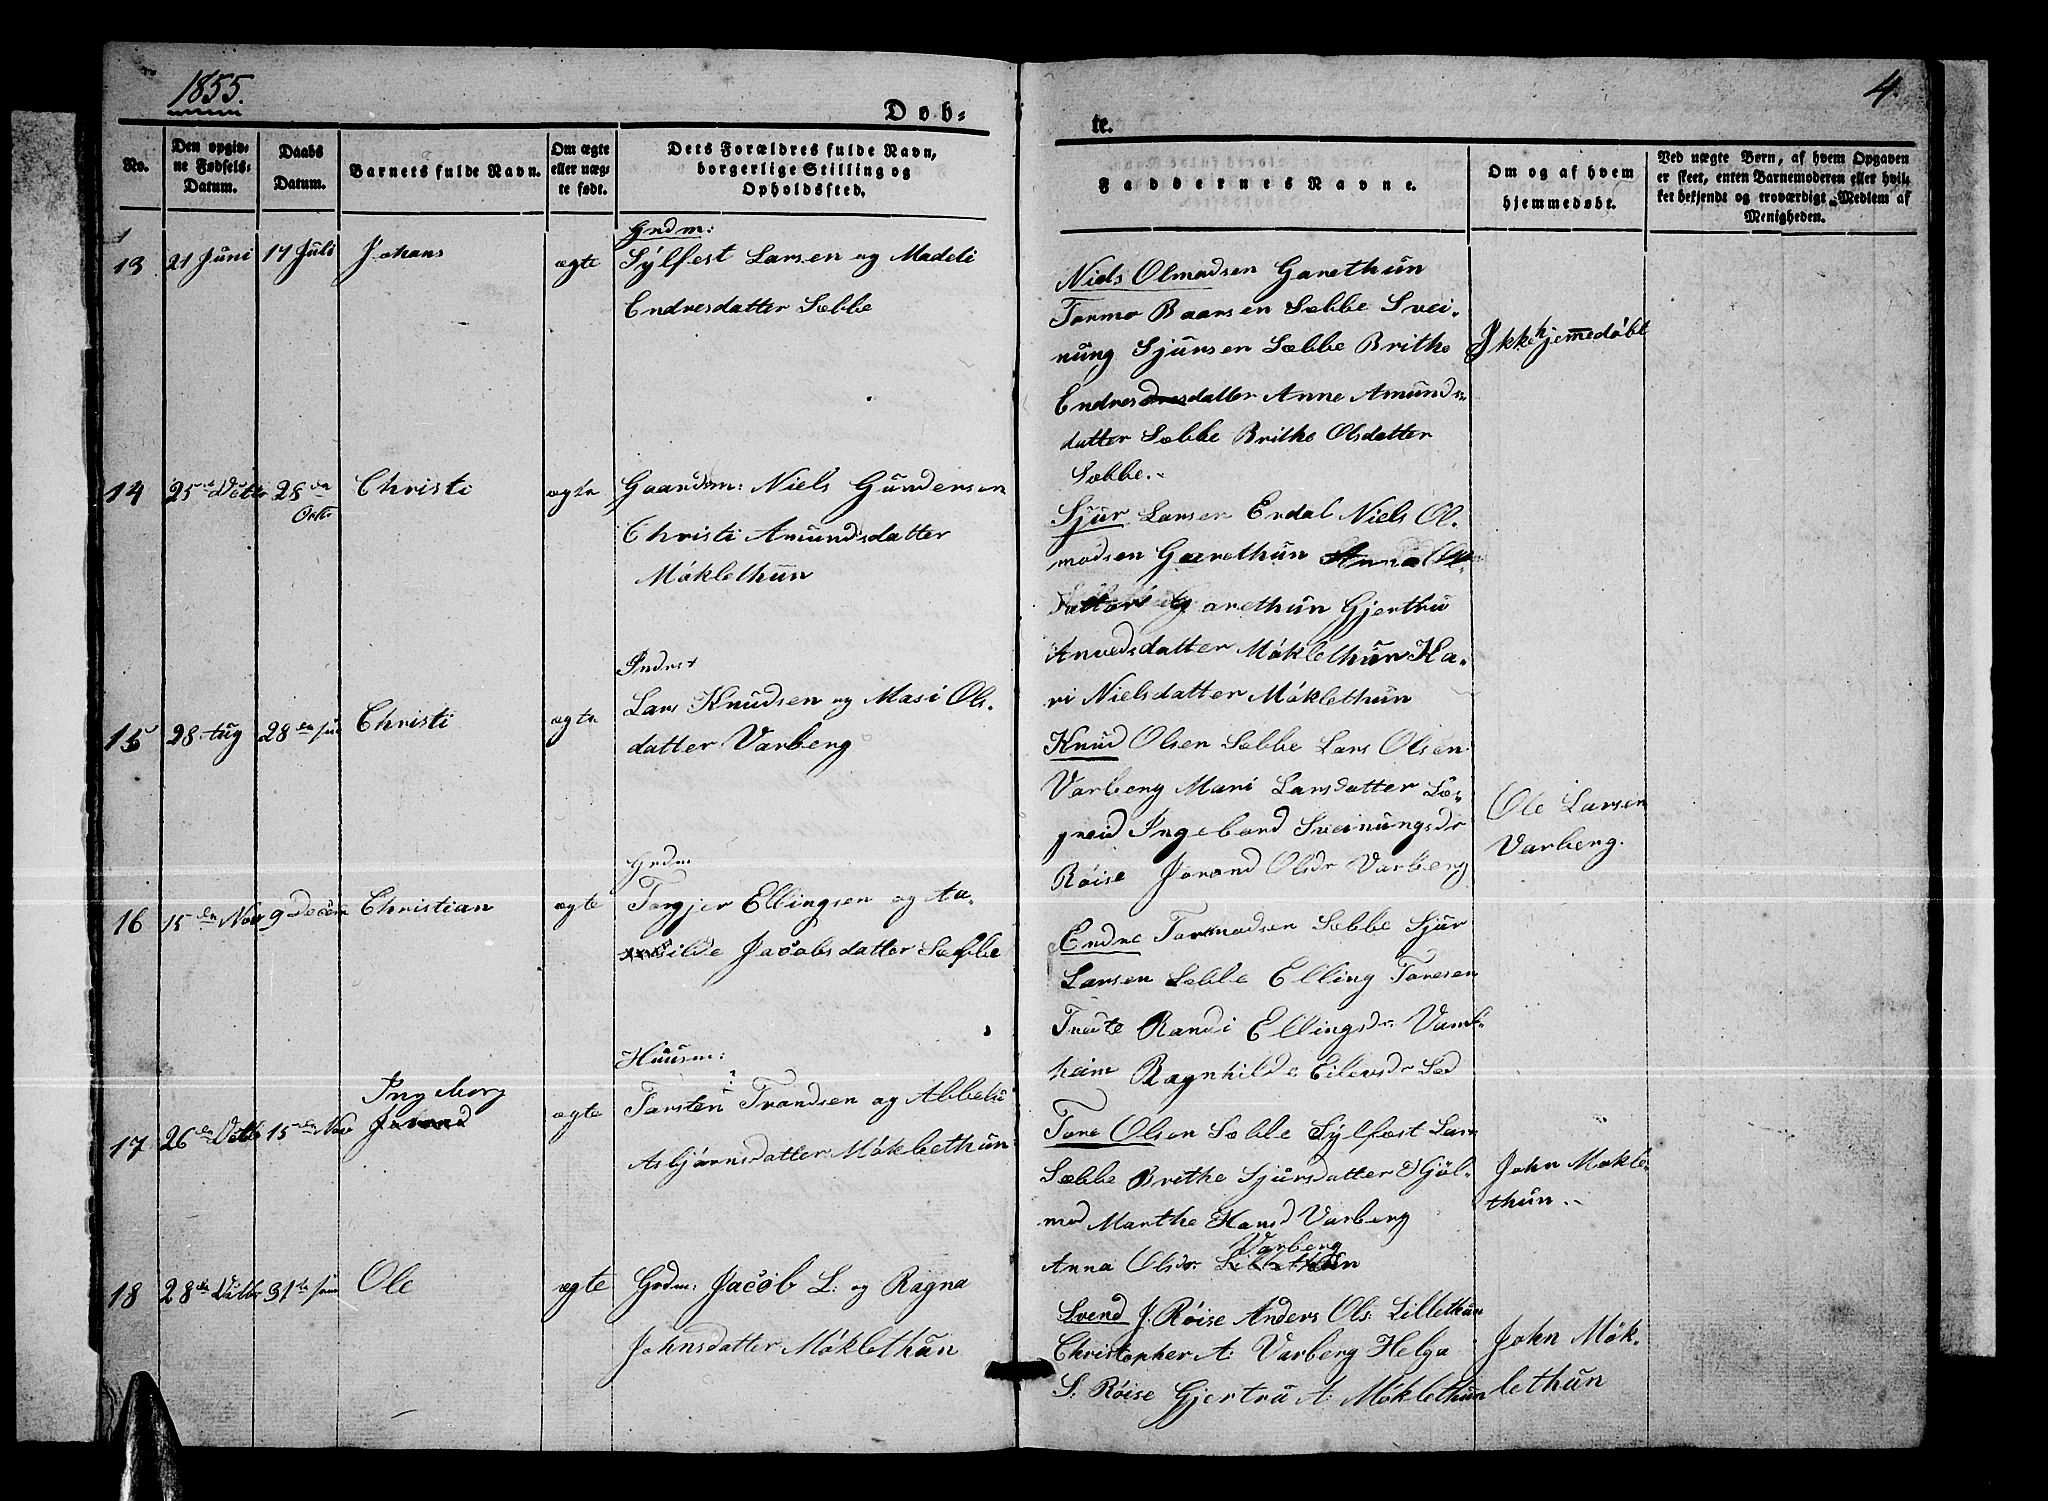 1855.
4
Döb-
te.
No.
Den opgiv-
ne Fødsels-
Datum.
Daabs
Datum.
Barnets fulde Navn.
Om ægte
eller uæg-
te født.
Dets Forældres fulde Navn,
borgerlige Stilling og
Opholdssted.
Faddernes Navne.
Om og af hvem
hjemmedøbt.
Ved uægte Børn, af hvem Opgaven
er skeet, enten Barnemoderen eller hvil-
ket bekjendt og troværdigt Medlem af
Menigheden.
13 21 Juni 17 Juli Johans ægte
Grdm:
Sÿlfest Larsen og Madeli
Endresdatter Sæbbe
Niels Olmodsen Garethun
Tormo Baarsen Sæbbe Svei-
nung Sjursen Sæbbe Brithe
Endresdatter Anne Amunds-
datter Sæbbe Brithe Olsdatter
Sæbbe.
Ikke hjemmedøbt
14 25 Octbr 28de Octbr Christi ægte
Gaardm: Niels Gundersen
Christi Amundsdatter
Møklethun
Sjur Larsen Endal Niels Ol-
modsen Garethun
Garethun Gjertru
Anvedsdatter Møklethun Ka-
ri Nielsdatter Møklethun
15 28 Aug 28de Christi ægte
Indrst
Lars Knudsen og Masi Ols-
datter Varberg
Knud Olsen Sæbbe Lars Olsen
Varberg Mari Larsdatter Sæ-
greid Ingebord Sveinungsdr
Røise Jorand Olsdr Varberg
Ole Larsen
Varberg.
16 15den Nov 9de Decem Christian ægte
Grdm
Torgjer Ellingsen og Aa-
silde Jacobsdatter Sæbbe
Endre Tormodsen Sæbbe Sjur
Larsen Sæbbe Elling Toresen
Tveite Randi Ellingsdr. Vamb-
heim Ragnhilde Eilevsdr Sæd
17 26de Octbr 15den Nov
Ingeborg
Jorand
ægte
Huusm:
Torsten Trondsen og Abbelsi
Asbjørnsdatter Møklethun
Tore Olsen Sæbbe Sÿlfest Lars
Sæbbe Brithe Sjursdatter Hjøl-
mo Marthe Hansd Varberg
Varberg
Anna Olsdr. Lillethun
John Møkle-
thun.
18 28de Octbr 31te Ole ægte
Grdm: Jacob L: og Ragna
Johnsdatter Møklethun
Svend J. Røise Anders Ols. Lillethun
Christopher A: Varberg Helga
S: Røise Gjertru A: Møklethun
John Møk-
lethun